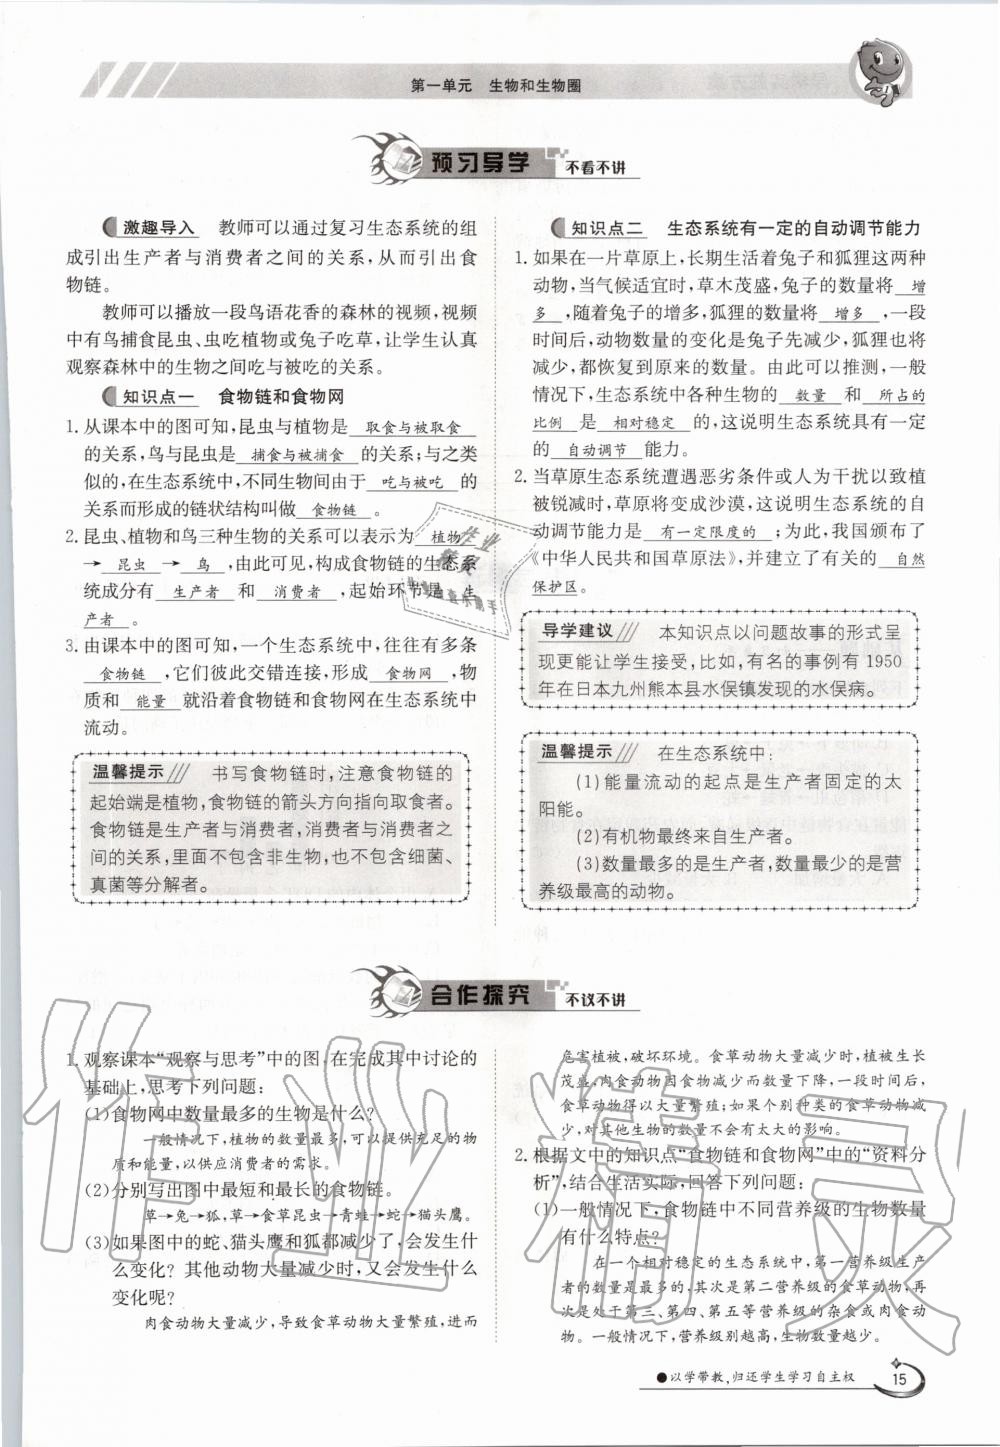 第一单元 生物和生物圈
预习导学 不看不讲
激趣导入 教师可以通过复习生态系统的组
成引出生产者与消费者之间的关系,从而引出食
物链。
教师可以播放一段鸟语花香的森林的视频,视频
中有鸟捕食昆虫、虫吃植物或兔子吃草,让学生认真
观察森林中的生物之间吃与被吃的关系。
知识点一 食物链和食物网
1. 从课本中的图可知,昆虫与植物是 取食与被取食
的关系,鸟与昆虫是 捕食与被捕食 的关系;与之类
似的,在生态系统中,不同生物间由于 吃与被吃 的
关系而形成的链状结构叫做 食物链 。
2. 昆虫、植物和鸟三种生物的关系可以表示为 植物
→ 昆虫 → 鸟 ,由此可见,构成食物链的生态系
统成分有 生产者 和 消费者 ,起始环节是 生
产者 。
3. 由课本中的图可知,一个生态系统中,往往有多条
食物链 ,它们彼此交错连接,形成 食物网 ,物
质和 能量 就沿着食物链和食物网在生态系统中
流动。
温馨提示 书写食物链时,注意食物链的
起始端是植物,食物链的箭头方向指向取食者。
食物链是生产者与消费者,消费者与消费者之
间的关系,里面不包含非生物,也不包含细菌、
真菌等分解者。
知识点二 生态系统有一定的自动调节能力
1. 如果在一片草原上,长期生活着兔子和狐狸这两种
动物,当气候适宜时,草木茂盛,兔子的数量将 增
多 ,随着兔子的增多,狐狸的数量将 增多 ,一段
时间后,动物数量的变化是兔子先减少,狐狸也将
减少,都恢复到原来的数量。由此可以推测,一般
情况下,生态系统中各种生物的 数量 和 所占的
比例 是 相对稳定 的,这说明生态系统具有一定
的 自动调节 能力。
2. 当草原生态系统遭遇恶劣条件或人为干扰以致植
被锐减时,草原将变成沙漠,这说明生态系统的自
动调节能力是 有一定限度的 ;为此,我国颁布了
《中华人民共和国草原法》,并建立了有关的 自然
保护区。
导学建议 本知识点以问题故事的形式呈
现更能让学生接受,比如,有名的事例有1950
年在日本九州熊本县水俣镇发现的水俣病。
温馨提示 在生态系统中:
(1)能量流动的起点是生产者固定的太
阳能。
(2)有机物最终来自生产者。
(3)数量最多的是生产者,数量最少的是营
养级最高的动物。
合作探究 不议不讲
1. 观察课本“观察与思考”中的图,在完成其中讨论的
基础上,思考下列问题:
(1)食物网中数量最多的生物是什么?
一般情况下,植物的数量最多,可以提供充足的物
质和能量,以供应消费者的需求。
(2)分别写出图中最短和最长的食物链。
草→兔→狐,草→食草昆虫→青蛙→蛇→猫头鹰。
(3)如果图中的蛇、猫头鹰和狐都减少了,会发生什
么变化?其他动物大量减少时,又会发生什么
变化呢?
肉食动物大量减少,导致食草动物大量繁殖,进而
危害植被,破坏环境。食草动物大量减少时,植被生长
茂盛,肉食动物因食物减少而数量下降,一段时间后,
食草动物得以大量繁殖;如果个别种类的食草动物减
少,对其他生物的数量不会有太大的影响。
2. 根据文中的知识点“食物链和食物网”中的“资料分
析”,结合生活实际,回答下列问题:
(1)一般情况下,食物链中不同营养级的生物数量
有什么特点?
在一个相对稳定的生态系统中,第一营养级生产
者的数量是最多的,其次是第二营养级的食草动物,再
次是处于第三、第四、第五等营养级的杂食或肉食动
物。一般情况下,营养级别越高,生物数量越少。
●以学带教,归还学生学习自主权
15
作业精灵